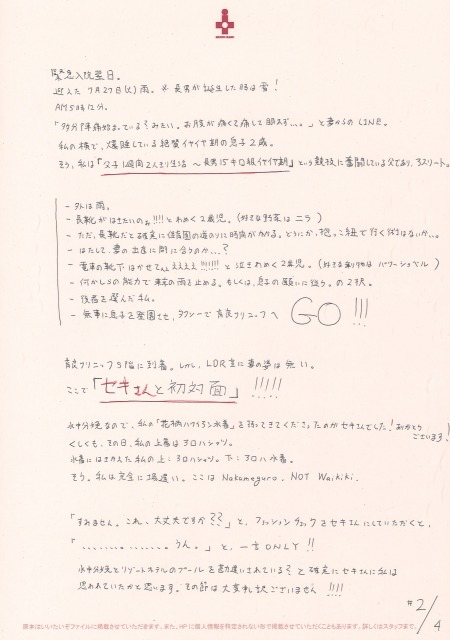 緊急入院翌日。
迎えた 9月27日(火) 雨。※長男が誕生した時は雪！
AM5時12分。
「多分陣痛始まっている？みたい。お腹が痛くて痛くて眠れず…。」と妻からの LINE。
私の横で、爆睡している絶賛イヤイヤ期の息子2歳。
そう、私は「父子1週間2人きり生活 〜長男15キロ級イヤイヤ期」という競技に奮闘している父であり、アスリート。
- 外は雨。
- 長靴がはきたいのぉ!!!! とわめく2歳児。(好きな野菜は ニラ)
- ただ、長靴だと確実に保育園の道のりに時間がかかる。どうにか、抱っこ紐で行く術はないか…。
- はたして、妻の出産に間に合うのか…？
- 電車の靴下はかせてぇぇぇぇぇぇ!!!!!! と泣きわめく2歳児。(好きな乗り物は パワーショベル)
- 何かしらの能力で東京の雨を止める。もしくは、息子の願いに従う。の2択。
- 後者を選んだ私。
- 無事に息子を登園させ、タクシーで育良クリニックへ GO!!!
育良クリニック5階に到着。しかし、LDR室に妻の姿は無い。
ここで「セキさんと初対面」!!!!!
水中分娩なので、私の「花柄ハワイアン水着」を持ってきてくださったのがセキさんでした！ありがとうございます！
くしくも、その日、私の上着はアロハシャツ。
水着にはきかえた私の上：アロハシャツ。下：アロハ水着。
そう。私は完全に場違い。ここは Nakameguro. NOT Waikiki.
「すみません。これ、大丈夫ですか??」と、ファッションチェックをセキさんにしていただくと、
「………。………。うん。」と、一言ONLY!!
水中分娩とリゾートホテルのプールを勘違いされている？と確実にセキさんに私は
思われていたかと思います。その節は大変失礼ございません!!!!
#2/4
原本はいいたいぞファイルに掲載させていただきます。また、HPに個人情報を特定されない形で掲載させていただくこともあります。詳しくはスタッフまで。